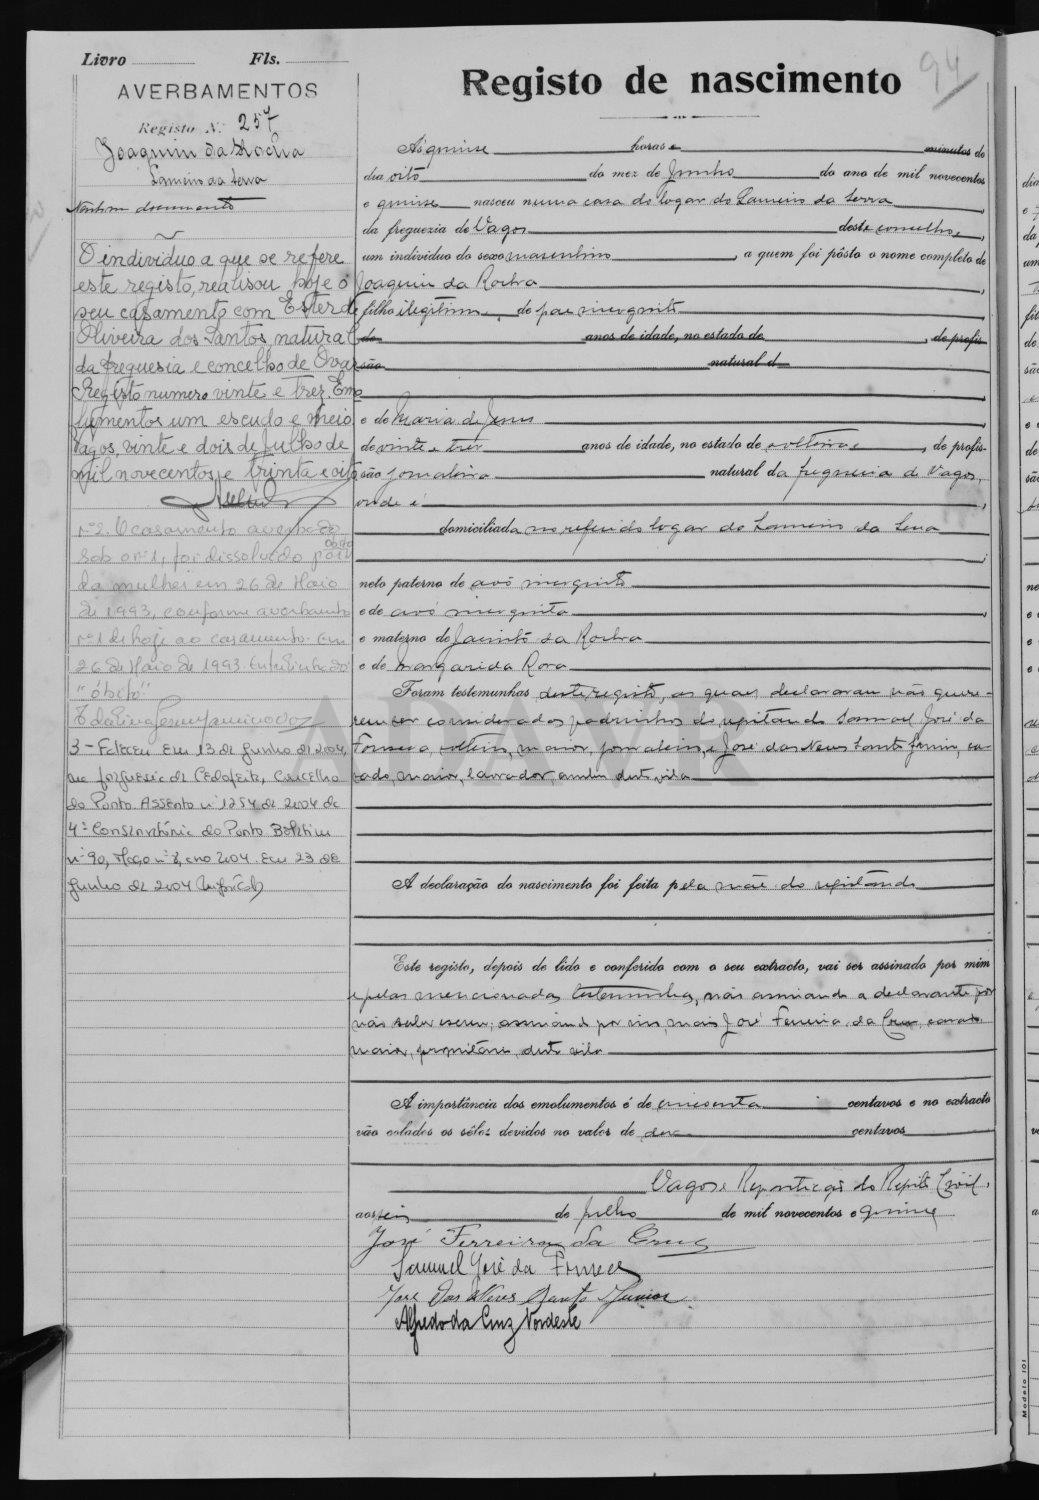 Livro Fls.
AVERBAMENTOS
Registo N.º 257
Joaquim da Rocha
Lameiro da Serra
Nenhum documento
O individuo a que se refere
este registo, realisou hoje o
seu casamento com Ester de
Oliveira dos Santos, natural
da freguesia e concelho de Ovar
Registo numero vinte e trez. Emo
lumentos um escudo e meio
Vagos, vinte e dois de Julho de
mil novecentos e trinta e oito
Nº 2. O casamento averbado
sob o nº 1, foi dissolvido por óbito
da mulher em 26 de Maio
de 1993, conforme averbamento
nº 1 de hoje ao casamento. Em
26 de Maio de 1993. Entrelinhado
"óbito"
3 - Faleceu em 13 de Junho de 2004,
na freguesia de Cedofeita, concelho
do Porto. Assento nº 1254 de 2004 da
4ª Conservatória do Porto. Boletim
nº 90, Maço nº 8, ano 2004. Em 23 de
Junho de 2004
94
Registo de nascimento
Ás quinse horas e minutos do
dia oito do mez de Junho do ano de mil novecentos
e quinse nasceu numa casa do logar do Lameiro da Serra
da freguezia de Vagos deste concelho,
um individuo do sexo masculino, a quem foi pôsto o nome completo de
Joaquim da Rocha
filho ilegitimo de pae incognito
de anos de idade, no estado de , de profis-
são natural d
e de Maria de Jesus
de vinte e trez anos de idade, no estado de solteira, de profis-
são jornaleira natural da freguesia de Vagos,
onde é
domiciliada no referido logar do Lameiro da Serra
neto paterno de avô incognito
e de avó incognita
e materno de Jacinto da Rocha
e de Margarida Rosa
Foram testemunhas deste registo, as quaes declararam não quere-
rem ser considerados padrinhos do registando Samuel José da
Fonseca, solteiro, maior, jornaleiro, e José das Neves Santo Junior, ca-
sado, maior, lavrador, ambos desta vila
A declaração do nascimento foi feita pela mãe do registando
Este registo, depois de lido e conferido com o seu extracto, vai ser assinado por mim
e pelas mencionadas testemunhas, não assinando a declarante por
não saber escrever; assinando por mais José Ferreira da Cruz, casado
maior, proprietário, desta vila
A importância dos emolumentos é de cincoenta centavos e no extracto
vão colados os sêlos devidos no valor de dez centavos
Vagos e Repartição do Registo Civil,
aos seis de julho de mil novecentos e quinse
José Ferreira da Cruz
Samuel José da Fonseca
José das Neves Santo Junior
Alfredo da Cruz Nordeste
ADAVR
Modelo 101